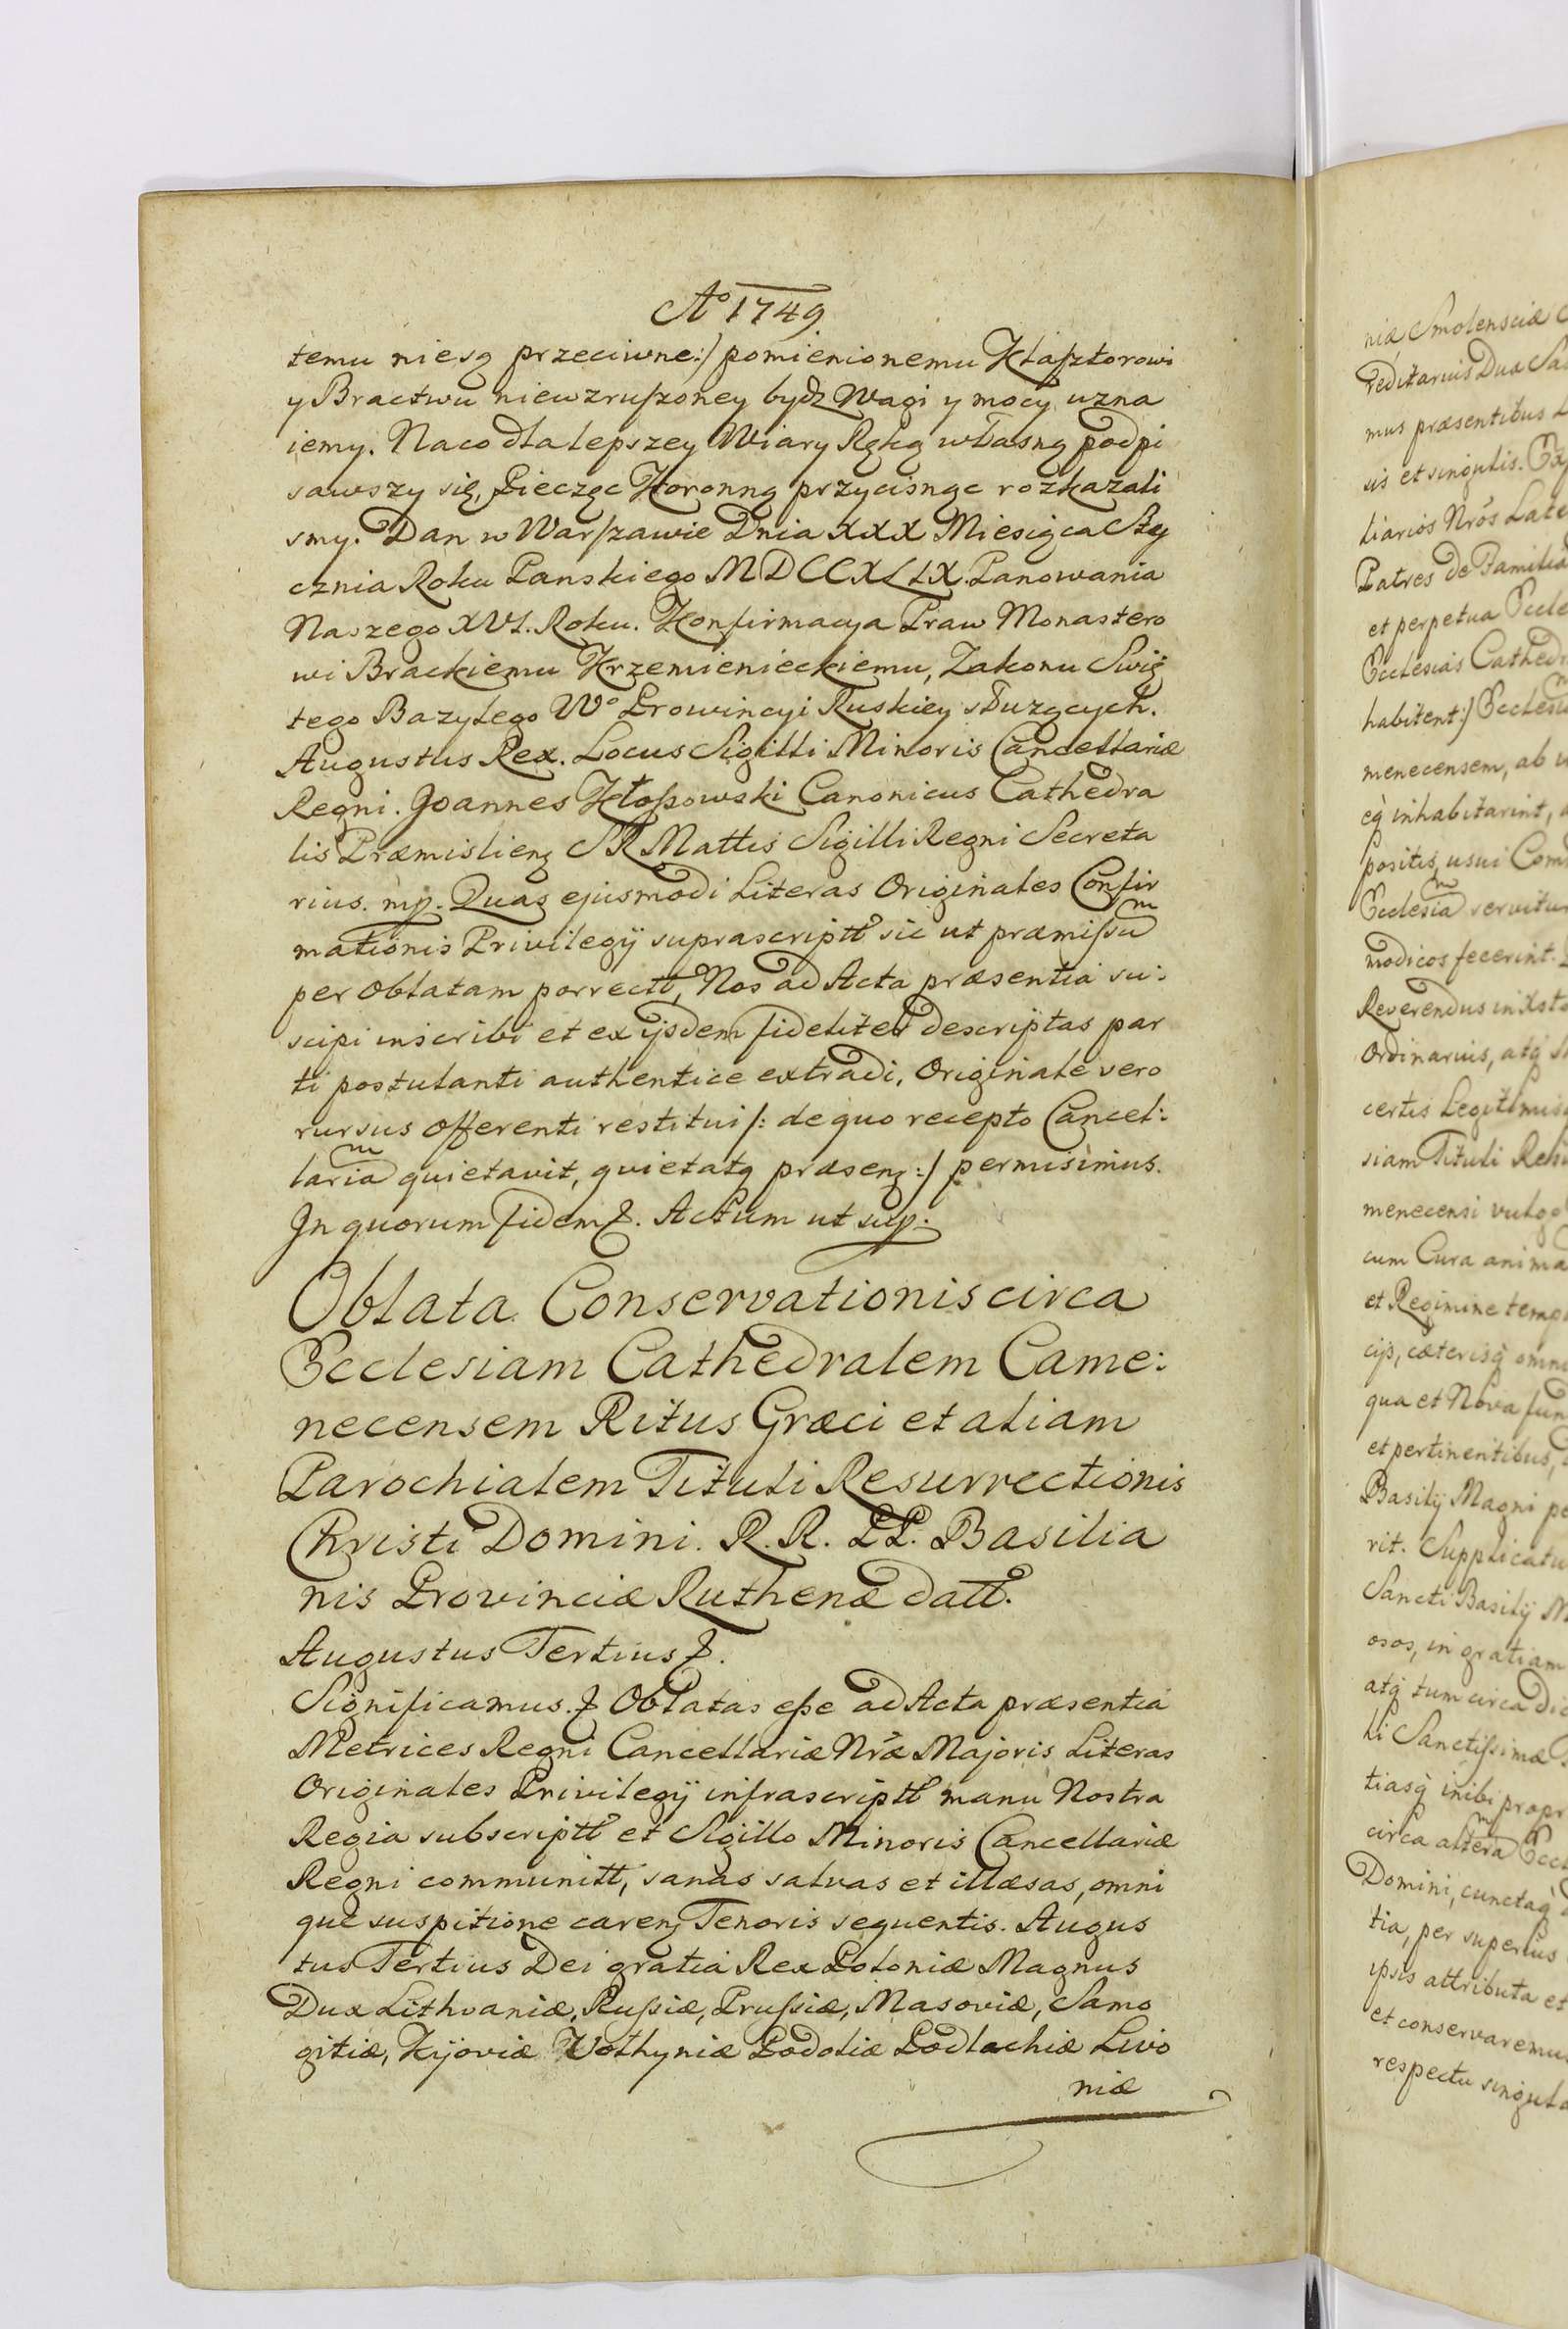 Aº 1749
temu niesą przeciwne:/ pomienionemu Klasztorowi
y Bractwu niewzruszoney bydz Wagi y mocy uzna
iemy. Naco dla lepszey Wiary Ręką własną podpi
sawszy się, Pieczęc Koronną przycisnąc rozkazali
smy. Dan w Warszawie Dnia XXX Miesiąca Sty
cznia Roku Panskiego MDCCXLIX. Panowania
Naszego XVI. Roku. Konfirmacya Praw Monastero
wi Brackiemu Krzemienieckiemu, Zakonu Swię
tego Bazylego Wº Prowincyi Ruskiey służących.
Augustus Rex. Locus Sigilli Minoris Cancellariæ
Regni. Joannes Kłossowski Canonicus Cathedra
lis Præmislienz SR Mattis Sigilli Regni Secreta
rius. mp. Quas ejusmodi Literas Originales Confir
mationis Privilegÿ suprascriptt sic ut præmissũ
per oblatam porrectt, Nos ad Acta præsentia su:
scipi inscribi et ex ÿsdem fideliter descriptas par
ti postulanti authentice extradi, Originale vero
rursus offerenti restitui /: de quo recepto Cancel:
lariã quietavit, quietatq præsenz :/ permisimus.
In quorum fidem &. Actum ut sup.
Oblata Conservationis circa
Ecclesiam Cathedralem Came:
necensem Ritus Græci et aliam
Parochialem Tituli Resurrectionis
Christi Domini. R. R. PP. Basilia
nis Provinciæ Ruthenæ datt.
Augustus Tertius &.
Significamus. & Oblatas esse ad Acta præsentia
Metrices Regni Cancellariæ Nræ Majoris Literas
Originales Privilegÿ infrascriptt manu Nostra
Regia subscriptt et Sigillo Minoris Cancellariæ
Regni communitt, sanas salvas et illæsas, omni
que suspitione carenz Tenoris sequentis. Augus
tus Tertius Dei gratia Rex Poloniæ Magnus
Dux Lithvaniæ, Russiæ, Prussiæ, Masoviæ, Samo
gitiæ, Kÿoviæ Volhyniæ Podoliæ Podlachiæ Livo
niæ
niæ Smolensciæ
reditarius Dux Sa
mus præsentibus L
is et singulis. Ex
liarios Nrõs Late
Patres de Familia
et perpetua Eccle
Ecclesias Cathedr
habitent:/ Ecclesi
menecensem, ab
eq̀ inhabitarint,
positis, usui Com
Ecclesiã servitur
modicos fecerint.
Reverendus in Xsto
Ordinarius, atq̀
certis Legitimis
siam Tituli Resu
menecensi vulgo
cum Cura anima
et Regimine temp
cijs, cæterisq̀ omni
qua et Nova fun
et pertinentibus,
Basilÿ Magni pe
rit. Supplicatu
Sancti Basilÿ M
osos, in gratiam
atq̀ tum circa dic
li Sanctissimæ
tiasq̀ inibi propr
circa alterã Eccl
Domini, cunctaq̀
tia, per superius
ipsis attributa et
et conservaremus
respectu singula